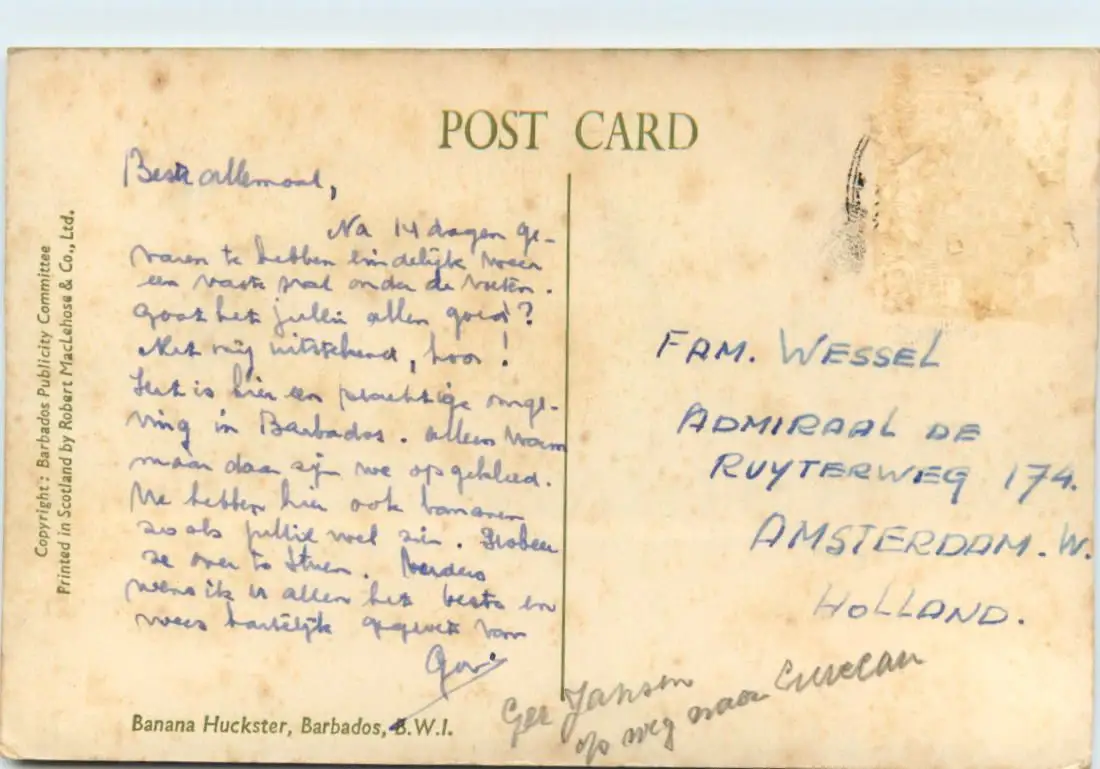 POST CARD
Copyright: Barbados Publicity Committee
Printed in Scotland by Robert MacLehose & Co., Ltd.
Beste allemaal,
Na 14 dagen ge-
varen te hebben eindelijk weer
een vaste wal onder de voeten.
Gaat het jullie allen goed?
Met mij uitstekend, hoor!
Het is hier een prachtige omge-
ving in Barbados. Alleen warm
maar daar zijn we op gekleed.
We hebben hier ook bananen
zoals jullie wel zien. Probeer
ze over te sturen. Verders
wens ik U allen het beste en
wees hartelijk gegroet van
Ger.
Banana Huckster, Barbados, B.W.I.
FAM. WESSEL
ADMIRAAL DE
RUYTERWEG 174.
AMSTERDAM. W.
HOLLAND.
Ger Jansen
op weg naar Curacau